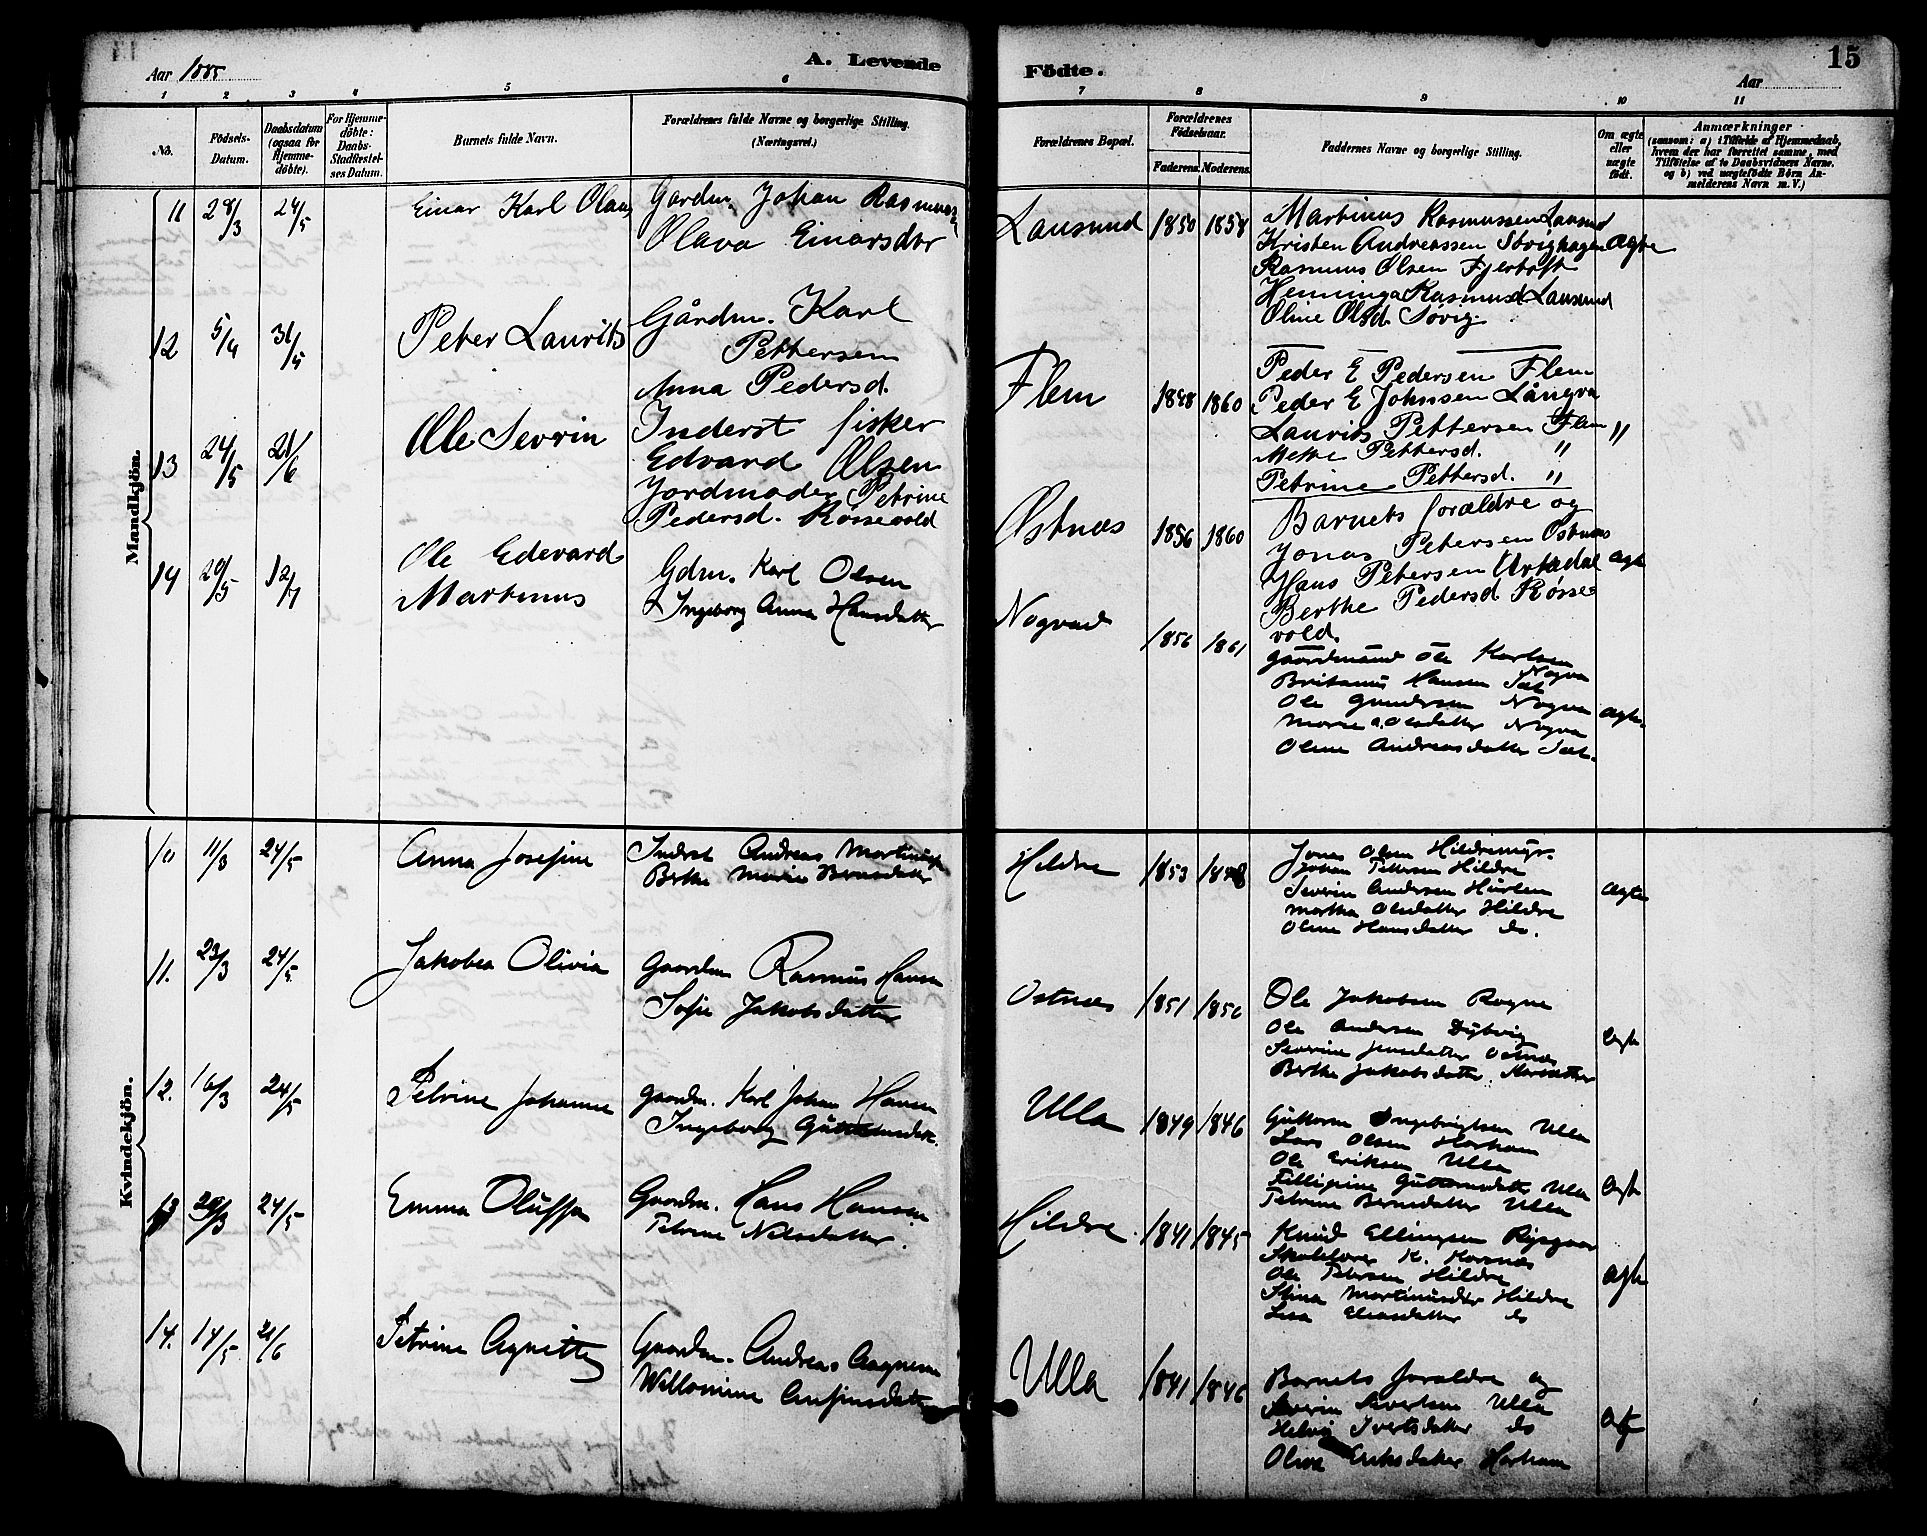 15
Aar 1885
A. Levende Födte.
Aar
1 2 3 4 5 6 7 8 9 10 11
No.
Födsels-Datum.
Daabsdatum (ogsaa for Hjemme-döbte).
For Hjemme-döbte: Daabs-Stadfæstelses Datum.
Barnets fulde Navn.
Forældrenes fulde Navne og borgerlige Stilling. (Næringsvei.)
Forældrenes Bopæl.
Forældrenes Födselsaar.
Faderens. Moderens.
Faddernes Navne og borgerlige Stilling.
Om ægte eller uægte födt.
Anmærkninger
(saasom: a) i Tilfælde af Hjemmedaab, hvem der har forrettet samme, med Tilföielse af to Daabsvidners Navne. og b) ved uægtefödte Börn Anmelderens Navn m. V.)
Mandkjön.
11 28/3 24/5 Einar Karl Olaus
Gardm. Johan Rasmussen
Olava Einarsdtr
Lausund 1850 1858
Martinus Rasmussen Lausund
Kristen Andreassen Søvighagen ægte
Rasmus Olsen Fjertoft
Henninga Rasmusd Lausund
Oline Olsd. Søvig.
12 5/4 31/5 Peter Laurits
Gårdm. Karl
Pettersen
Anna Pedersd.
Flem 1848 1860
Peder E Pedersen Flem
Peder E Johnsen Långva
Laurits Pettersen Flem "
Mette Pettersd. "
Petrine Pettersd. "
13 24/5 21/6 Ole Sevrin
Inderst fisker
Edvard Olsen
Jordmoder Petrine
Pedersd. Røssevold
Østnæs 1856 1860
Barnets forældre og
Jonas Petersen Østnæs
Hans Petersen Urkedal ægte
Berthe Pedersd Røsse
vold.
14 20/5 12/7 Ole Edevard
Martinus
Gdm. Karl Olsen
& Ingeborg Anna Hansdatter
Nogvad 1856 1861
gaardmand Ole Karlsen
Nogva
Britanus Hansen Sæt
Ole Gundersen Nogva ægte.
Marie A. Olsdatter Nogva
Oline Andreasdatter Sæt.
Kvindekjön.
10 11/3 24/5 Anna Josefine
Indrst Andreas Martinus
Berthe Marie Berntsdatter
Hildre 1853 1848
Jonas Olsen Hildremyr.
Johan Petersen Hildre
Severin Andersen Hurlen
Martha Olsdatter Hildre ægte
Oline Hansdatter do.
11. 23/3 24/5 Jakobea Olivia
Gaardm Rasmus Hansen
Sofie Jakobsdatter
Ostnæs 1851 1850
Ole Jakobsen Rogne
Ole Andersen Dybvig
Severine Jensdatter Ostnæs ægte
Berthe Jakobsdatter
12. 16/3 24/5 Petrine Johanne
Gaardm. Karl Johan Hansen
Ingeborg Guttormsdtr.
Ulla 1849 1846
Guttorm Ingebrigtsen Ulla
Lars Olsen Harham
Ole Eriksen Ulla
Fillipine Guttormsdatter Ulla ægte
Petrine Berntsdatter Ulla
13 29/3 24/5 Emma Oluffa
Gaardm. Hans Hansen
Petrine Nilsdatter.
Hildre 1841 1845
Knud Ellingsen
Skolelærer K. Hornæs
Ole Petersen Hildre ægte
Stina Martinusdtr Hildre
Lisa Eliasdatter do
14. 14/5 21/6 Petrine Agnitte
Gaardm. Andreas Aagesen
Willomine Anfinsdatter
Ulla 1841 1846
Barnets Forældre og
Severin Sivertsen Ulla
Helvig Ivertsdatter do ægte
Oline Eriksdatter Harham